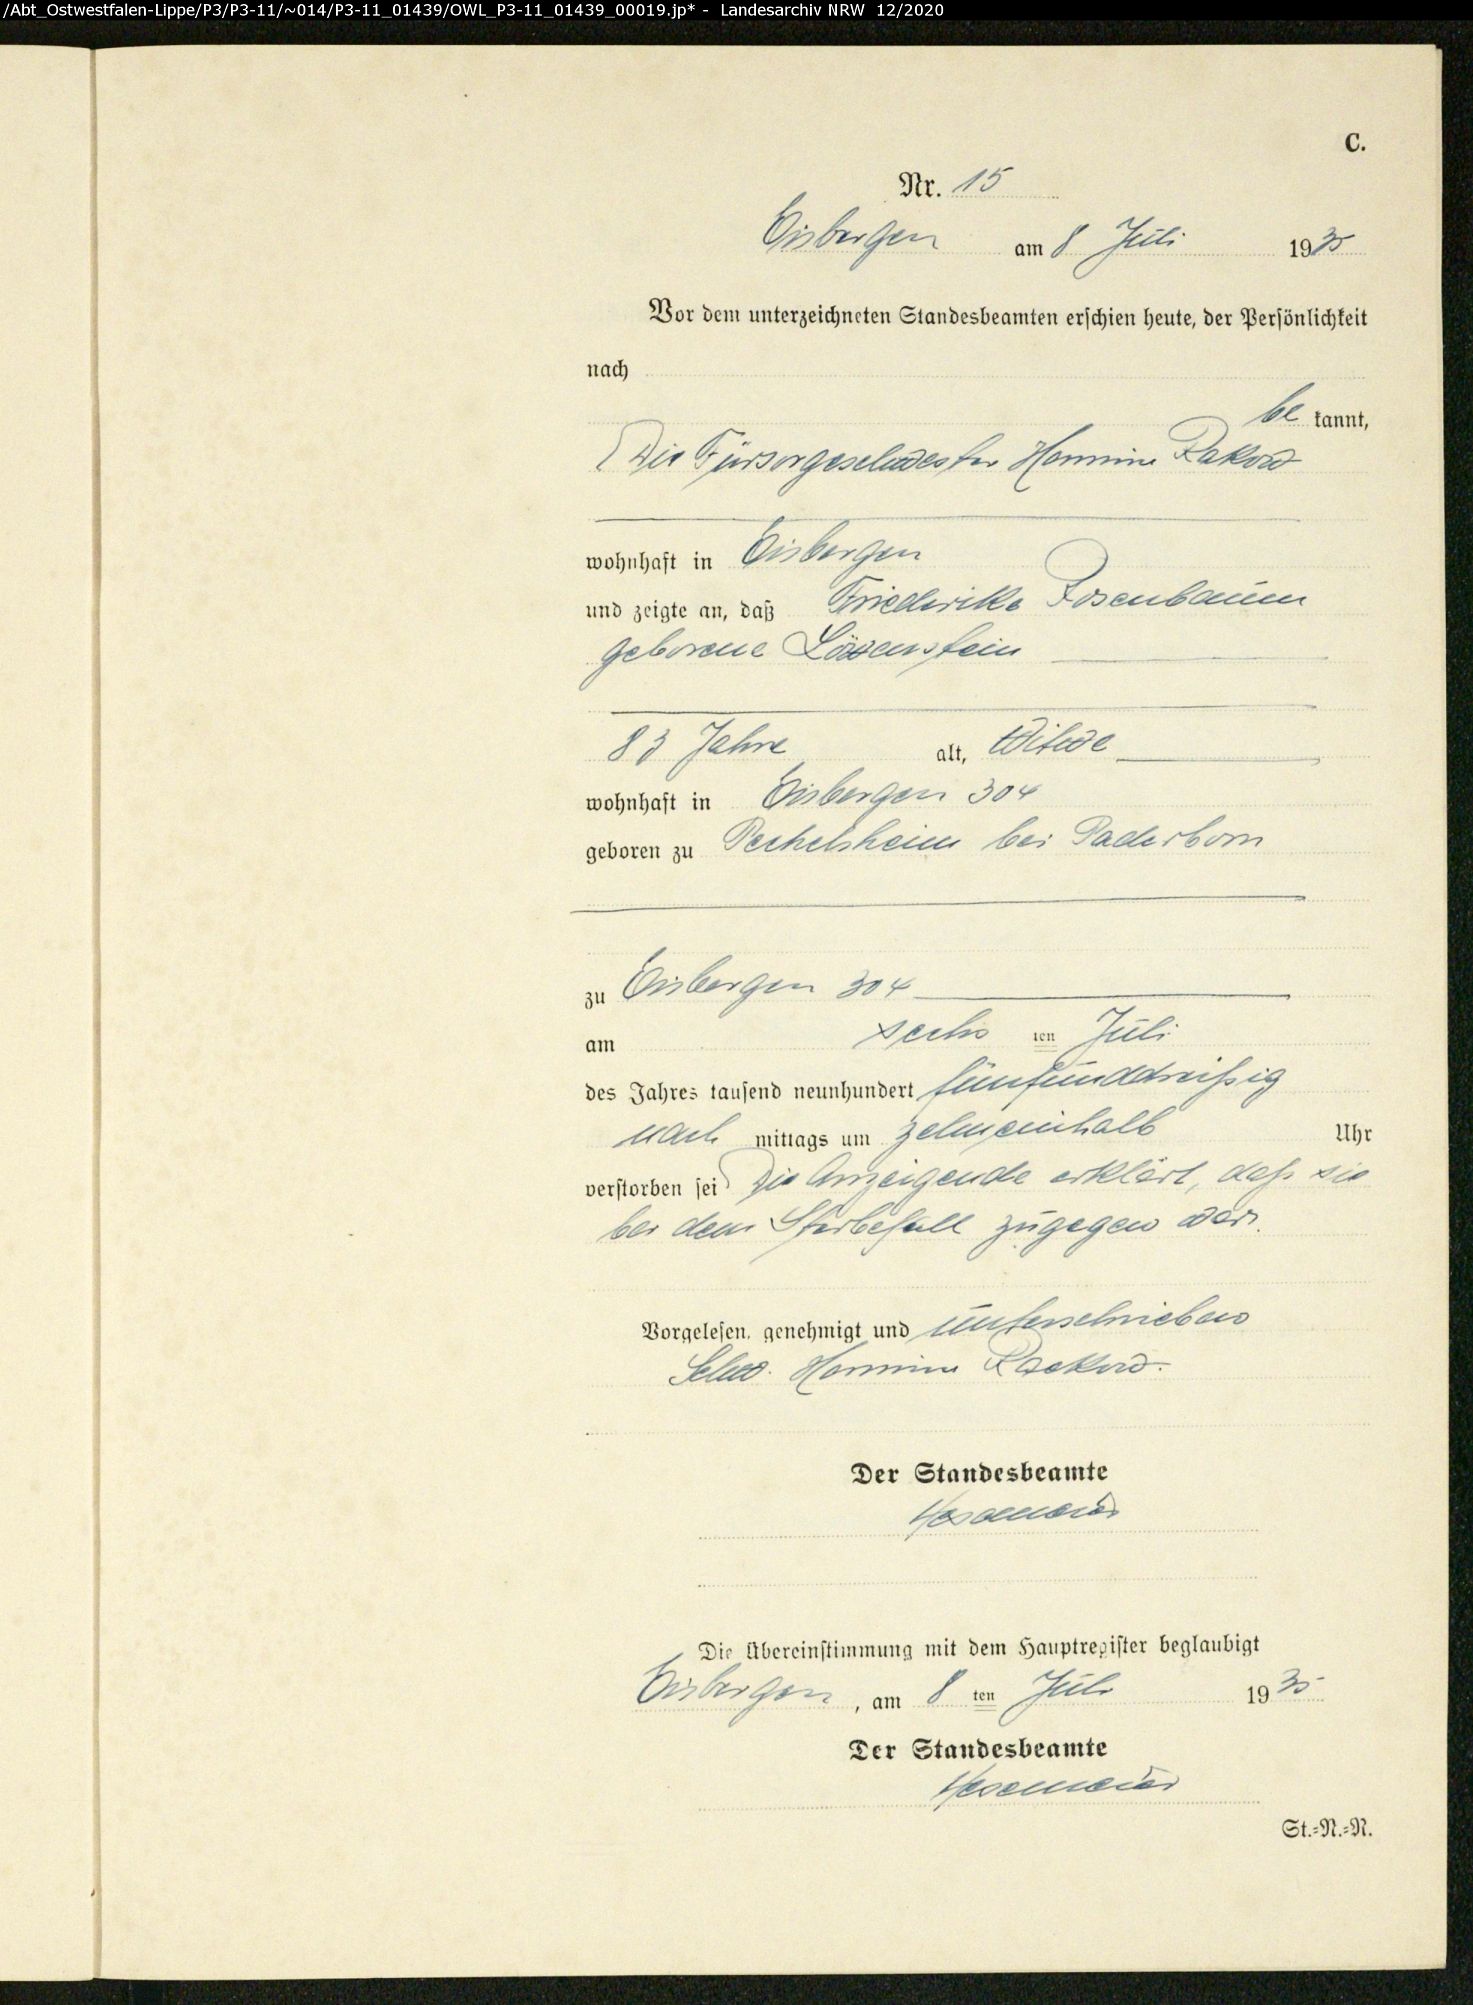 /Abt_Ostwestfalen-Lippe/P3/P3-11/~014/P3-11_01439/OWL_P3-11_01439_00019.jp* - Landesarchiv NRW 12/2020
C.
Nr. 15
Eisbergen am 8 Juli 1935
Vor dem unterzeichneten Standesbeamten erschien heute, der Persönlichkeit
nach
be kannt,
Die Fürsorgeschwester Hermine Rakow
wohnhaft in Eisbergen
und zeigte an, daß Friederike Rosenbaum
geborene Löwenstein
83 Jahre alt, Witwe
wohnhaft in Eisbergen 304
geboren zu Peckelsheim bei Paderborn
zu Eisbergen 304
am sechs ten Juli
des Jahres tausend neunhundert fünfunddreißig
nach mittags um zehneinhalb Uhr
verstorben sei Die Anzeigende erklärt, daß sie
bei dem Sterbefall zugegen war.
Vorgelesen, genehmigt und unterschrieben
Schw. Hermine Rackow.
Der Standesbeamte
Die Übereinstimmung mit dem Hauptregister beglaubigt
Eisbergen, am 8 ten Juli 1935
Der Standesbeamte
St.=N.=N.